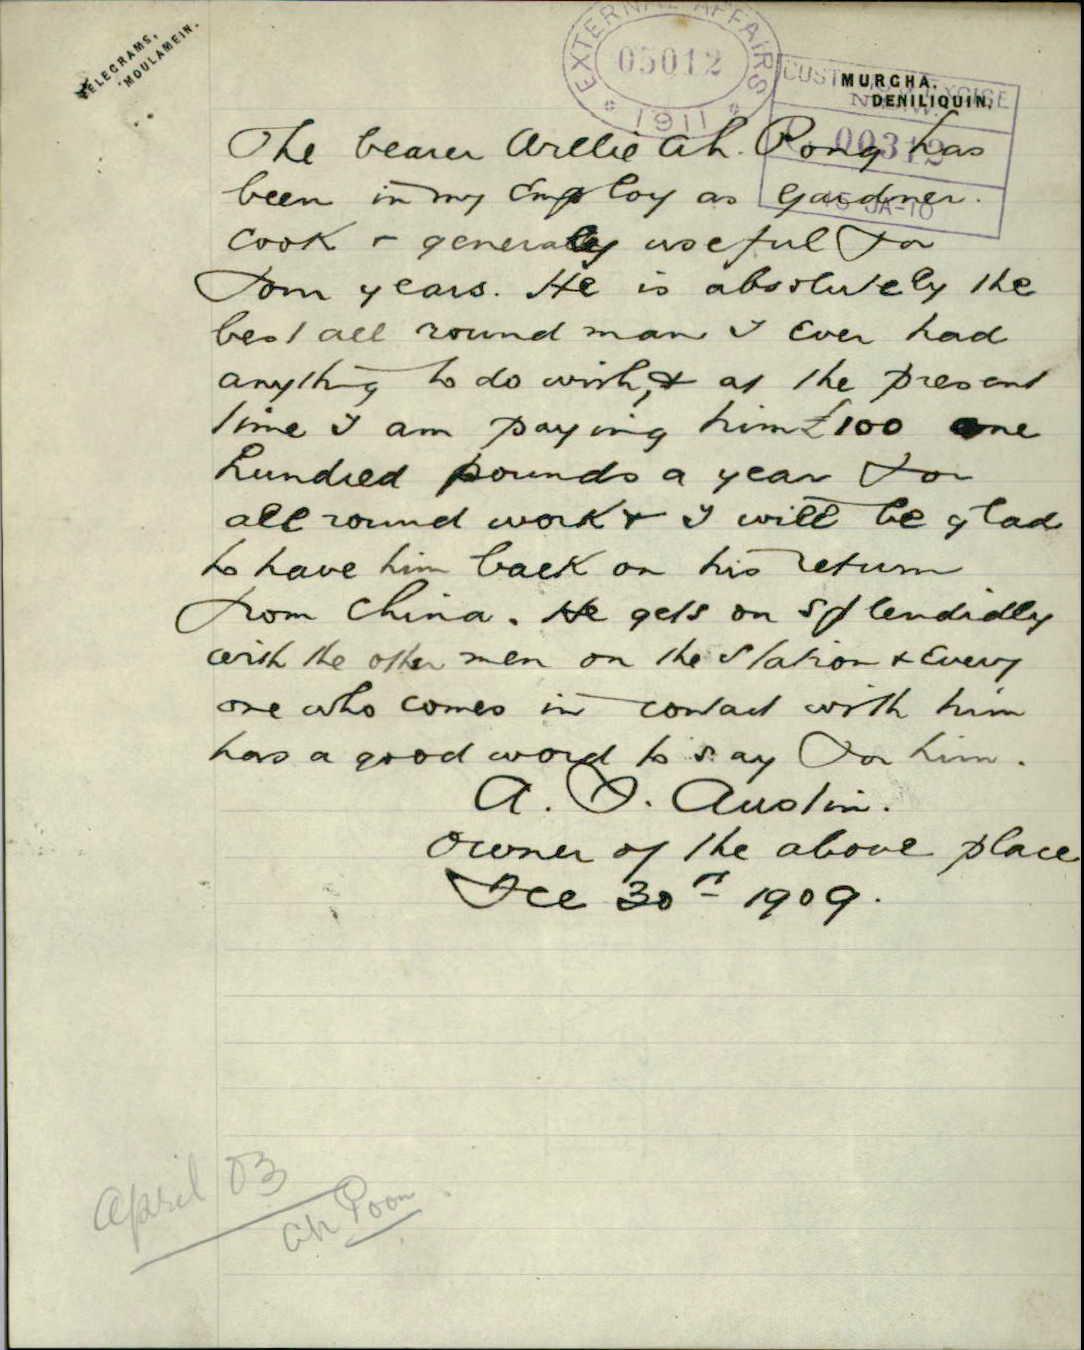 TELEGRAMS,
"MOULAMEIN.
EXTERNAL AFFAIRS
05012
1911
CUSTOMS & EXCISE
N.S.W.
MURGHA.
DENILIQUIN.
0031
15 JA-10
The bearer Willie Ah. Pong has
been in my Employ as Gardner.
Cook & generaly useful for
Four years. He is absolutely the
best all round man I Ever had
anything to do with, & at the present
time I am paying him £100 one
hundred pounds a year for
all round work & I will be glad
to have him back on his return
from China. He gets on splendidly
with the other men on the station & Every
one who comes in contact with him
has a good word to say for him.
A. F. Austin.
Owner of the above place
Dec 30th 1909.
April 03
Ah Poon